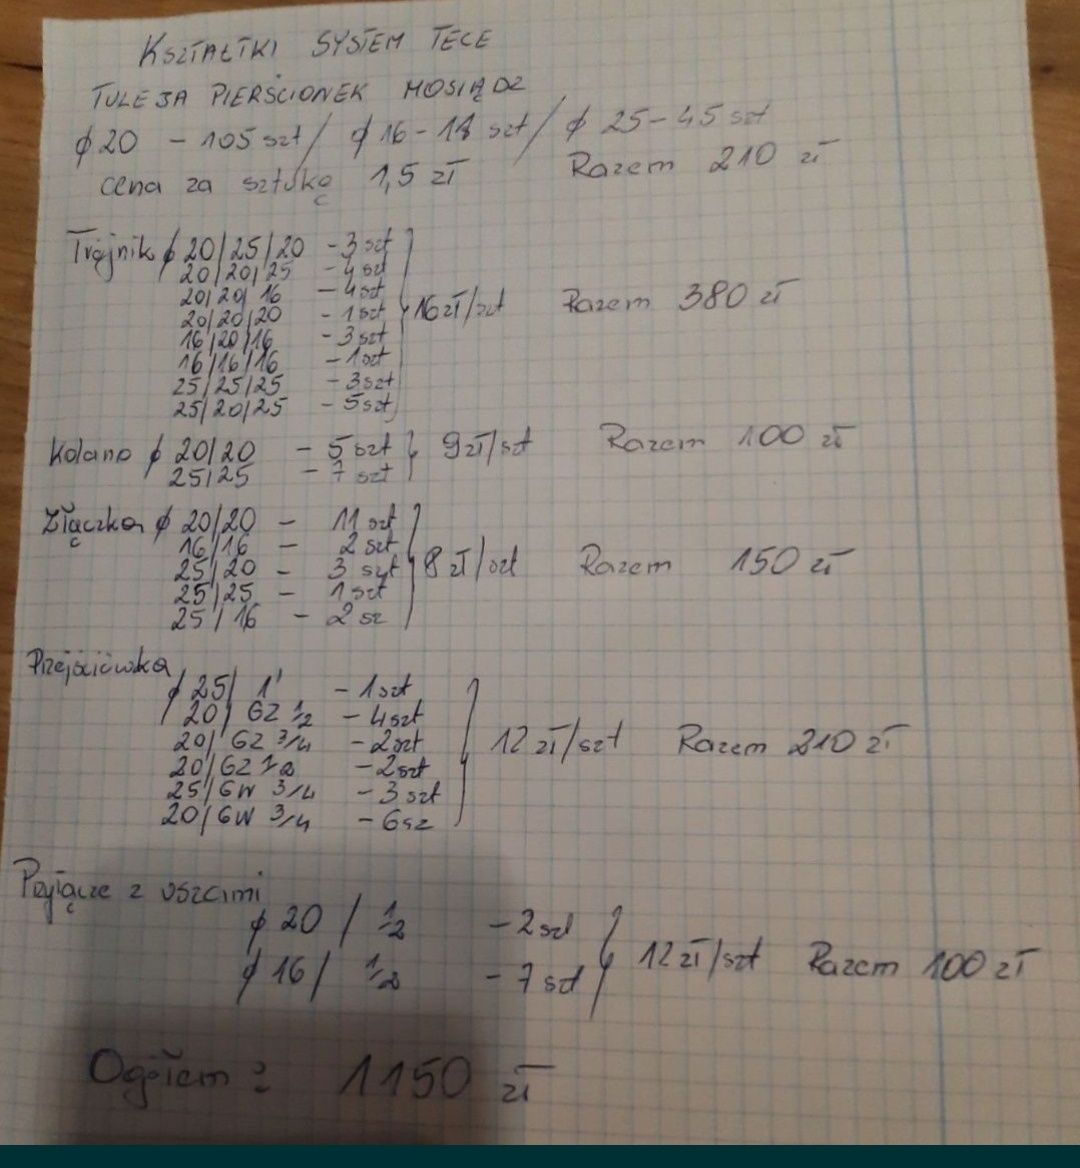 KSZTAŁTKI SYSTEM TECE
TULEJA PIERŚCIONEK MOSIĄDZ
ϕ20 - 105 szt / ϕ16 - 18 szt / ϕ 25 - 45 szt
cena za sztukę 1,5 zł Razem 210 zł
Trójnik ϕ 20/25/20 - 3 szt
20/20/25 - 4 szt
20/20/16 - 4 szt
20/20/20 - 1 szt } 16 zł/szt Razem 380 zł
16/20/16 - 3 szt
16/16/16 - 1 szt
25/25/25 - 3 szt
25/20/25 - 5 szt
Kolano ϕ 20/20 - 5 szt } 9 zł/szt Razem 100 zł
25/25 - 7 szt
Złączka ϕ 20/20 - 11 szt
16/16 - 2 szt
25/20 - 3 szt } 8 zł/szt Razem 150 zł
25/25 - 1 szt
25/16 - 2 sz
Przejściówka
ϕ 25/ 1' - 1 szt
20/ GZ 1/2 - 4 szt
20/ GZ 3/4 - 2 szt } 12 zł/szt Razem 210 zł
20/ GZ 1/2 - 2 szt
25/ GW 3/4 - 3 szt
20/ GW 3/4 - 6 sz
z uszcimi
ϕ 20 / 1/2 - 2 szt
ϕ 16 / 1/2 - 7 szt } 12 zł/szt Razem 100 zł
Ogółem : 1150 zł